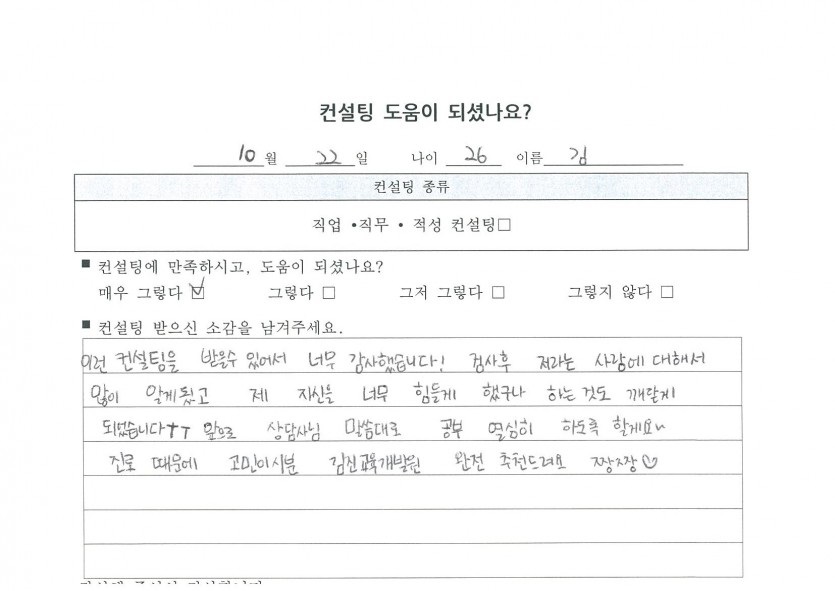 컨설팅 도움이 되셨나요?
10 월 22 일 나이 26 이름 김
컨설팅 종류
직업 •직무 • 적성 컨설팅□
■ 컨설팅에 만족하시고, 도움이 되셨나요?
매우 그렇다 ☑ 그렇다 □ 그저 그렇다 □ 그렇지 않다 □
■ 컨설팅 받으신 소감을 남겨주세요.
이런 컨설팅을 받을수 있어서 너무 감사했습니다! 검사후 저라는 사람에 대해서
많이 알게됬고 제 자신을 너무 힘들게 했구나 하는 것도 깨닫게
되었습니다ㅜㅜ 앞으로 상담사님 말씀대로 공부 열심히 하도록 할게요~
진로 때문에 고민이시분 김진교육개발원 완전 추천드려요 짱짱♡